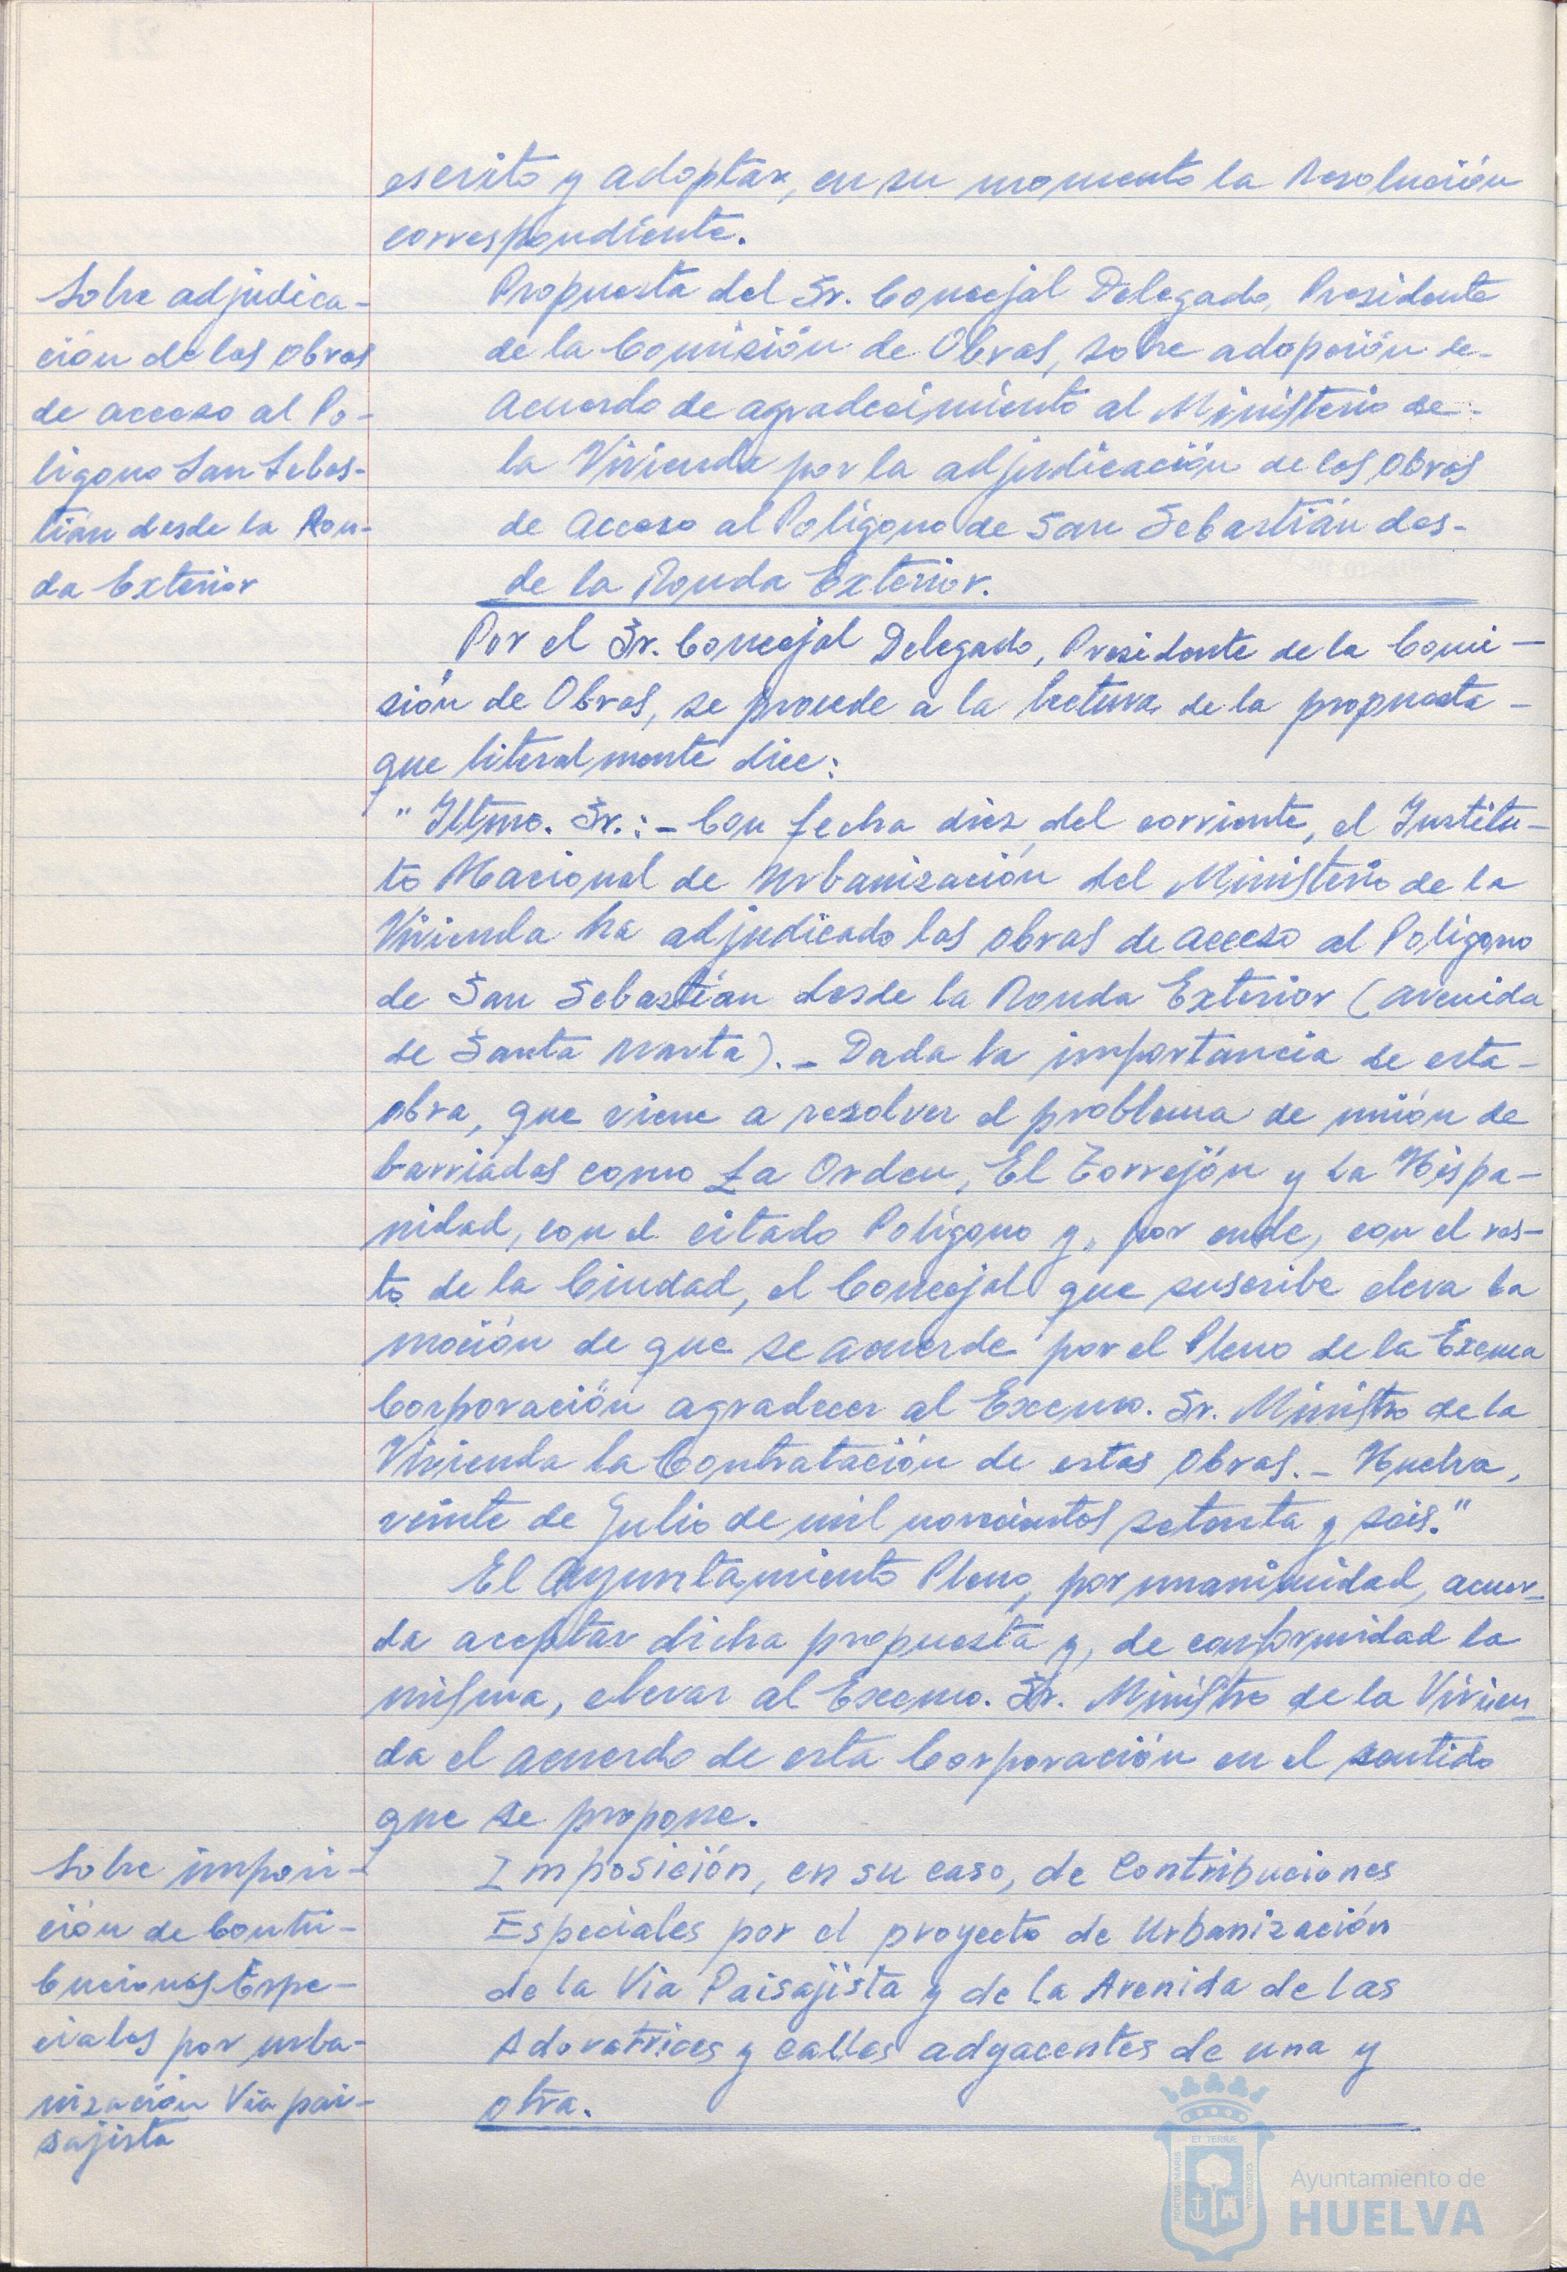 escrito y adoptar, en su momento la Resolución
correspondiente.
Sobre adjudica-
ción de las obras
de acceso al Po-
ligono San Sebas-
tián desde la Ron-
da Exterior
Propuesta del Sr. Concejal Delegado, Presidente
de la Comisión de Obras, sobre adopción de-
Acuerdo de agradecimiento al Ministerio de-
la Vivienda por la adjudicación de las obras
de Acceso al Polígono de San Sebastián des-
de la Ronda Exterior.
Por el Sr. Concejal Delegado, Presidente de la Comi-
sión de Obras, se procede a la lectura de la propuesta-
que literalmente dice:
"Iltmo. Sr.:- Con fecha diez del corriente, el Institu-
to Nacional de Urbanización del Ministerio de la
Vivienda ha adjudicado las obras de acceso al Poligono
de San Sebastián desde la Ronda Exterior (avenida
de Santa Marta).- Dada la importancia de esta-
obra, que viene a resolver el problema de unión de
barriadas como La Orden, El Torrejón y La Hispa-
nidad, con el citado Polígono y, por ende, con el res-
to de la Ciudad, el Concejal que suscribe eleva la
moción de que se acuerde por el Pleno de la Excma
Corporación agradecer al Excmo. Sr. Ministro de la
Vivienda la Contratación de estas obras.- Huelva,
veinte de Julio de mil novecientos setenta y seis."
El Ayuntamiento Pleno, por unanimidad, acuer-
da aceptar dicha propuesta y, de conformidad la
misma, elevar al Excmo. Sr. Ministro de la Vivien-
da el acuerdo de esta Corporación en el sentido
que se propone.
Sobre imposi-
ción de Contri-
buciones Espe-
ciales por urba-
nización Via pai-
sajista
Imposición, en su caso, de Contribuciones
Especiales por el proyecto de Urbanización
de la Via Paisajista y de la Avenida de las
Adoratrices y calles adyacentes de una y
otra.
PORTUS MARIS
ET TERRAE
CUSTODIA
Ayuntamiento de
HUELVA